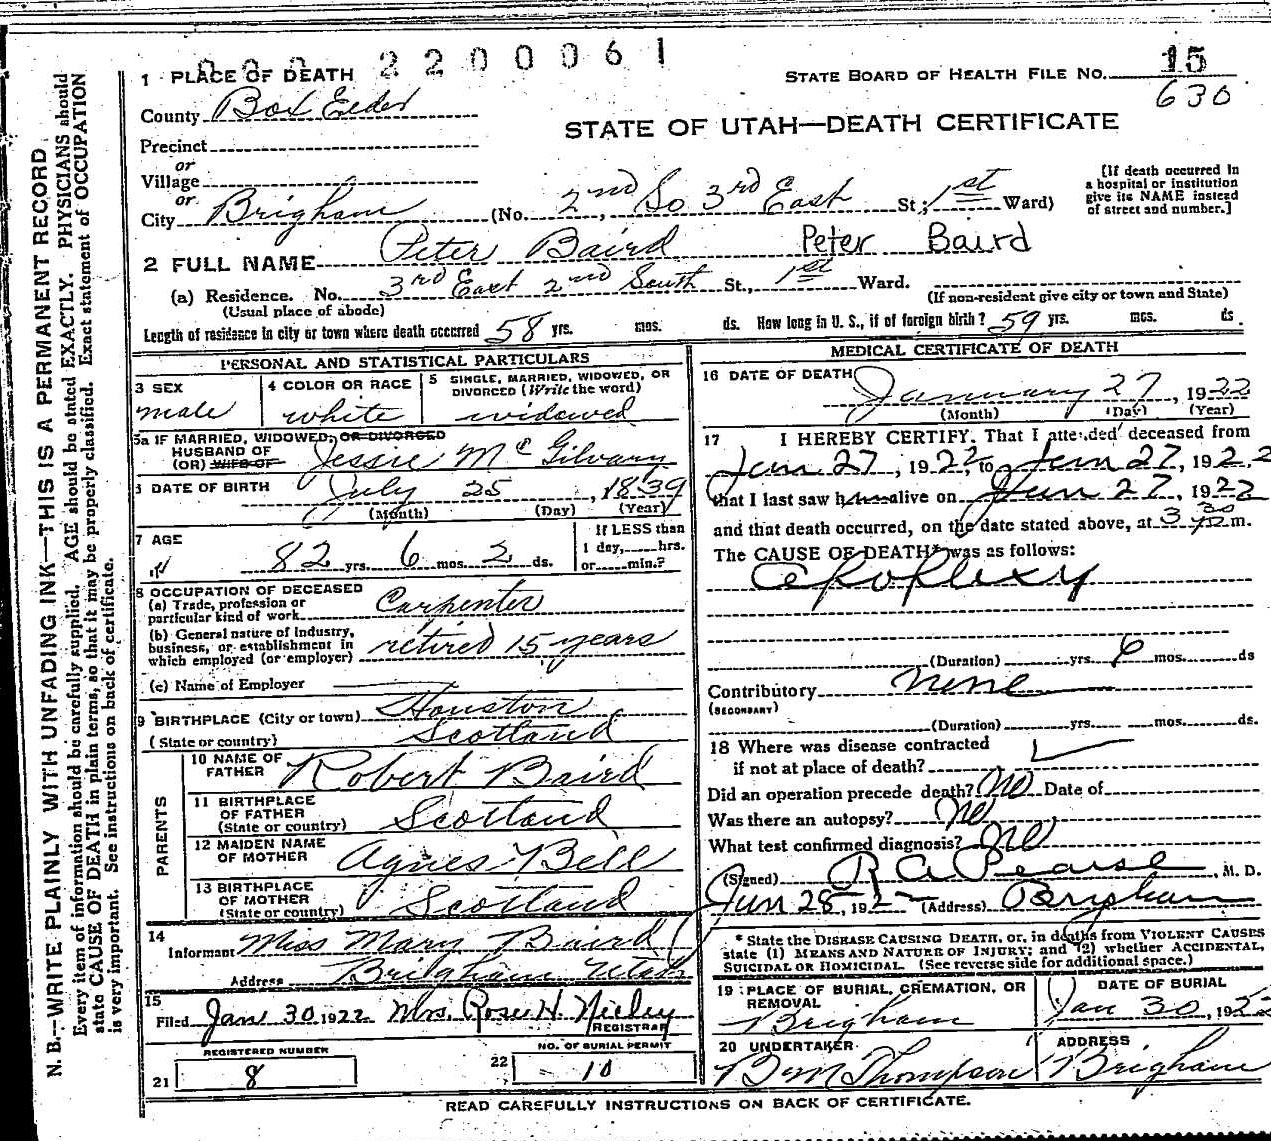 2200061
1 PLACE OF DEATH
STATE BOARD OF HEALTH FILE NO. 15
630
County Box Elder
STATE OF UTAH—DEATH CERTIFICATE
Precinct
or
Village
or
City Brigham (No. 2nd So 3rd East St; 1st Ward)
[If death occurred in a hospital or institution give its NAME instead of street and number.]
2 FULL NAME Peter Baird Peter Baird
(a) Residence. No. 3rd East 2nd South St., 1st Ward.
(Usual place of abode) (If non-resident give city or town and State)
Length of residence in city or town where death occurred 58 yrs. mos. ds. How long in U. S., if of foreign birth? 59 yrs. mos. ds.
PERSONAL AND STATISTICAL PARTICULARS
3 SEX
male
4 COLOR OR RACE
white
5 SINGLE, MARRIED, WIDOWED, OR DIVORCED (Write the word)
widowed
5a IF MARRIED, WIDOWED, OR DIVORCED
HUSBAND OF
(OR) WIFE OF Jessie McGilvary
6 DATE OF BIRTH July 25, 1839
(Month) (Day) (Year)
7 AGE
82 yrs. 6 mos. 2 ds.
If LESS than
1 day, hrs.
or min.?
8 OCCUPATION OF DECEASED
(a) Trade, profession or
particular kind of work Carpenter
(b) General nature of Industry,
business, or establishment in
which employed (or employer) retired 15 years
(c) Name of Employer
9 BIRTHPLACE (City or town) Houston
(State or country) Scotland
PARENTS
10 NAME OF
FATHER Robert Baird
11 BIRTHPLACE
OF FATHER
(State or country) Scotland
12 MAIDEN NAME
OF MOTHER Agnes Bell
13 BIRTHPLACE
OF MOTHER
(State or country) Scotland
14
Informant Miss Mary Baird
Address Brigham Utah
15
Filed Jan 30 1922 Mrs. Rose H. Neeley
REGISTRAR
REGISTERED NUMBER
21 8
NO. OF BURIAL PERMIT
22 10
MEDICAL CERTIFICATE OF DEATH
16 DATE OF DEATH
January 27, 1922
(Month) (Day) (Year)
17 I HEREBY CERTIFY, That I attended deceased from
Jan 27, 1922, to Jan 27, 1922
that I last saw h alive on Jan 27, 1922
and that death occurred, on the date stated above, at 3 30 m.
The CAUSE OF DEATH* was as follows:
Apoplexy
(Duration) yrs. 6 mos. ds
Contributory none
(SECONDARY)
(Duration) yrs. mos. ds.
18 Where was disease contracted
if not at place of death?
Did an operation precede death? No Date of
Was there an autopsy? No
What test confirmed diagnosis? No
(Signed) R A Pearse, M. D.
Jan 28, 192 (Address) Brigham
* State the DISEASE CAUSING DEATH, or, in deaths from VIOLENT CAUSES
state (1) MEANS AND NATURE OF INJURY; and (2) whether ACCIDENTAL,
SUICIDAL OR HOMICIDAL. (See reverse side for additional space.)
19 PLACE OF BURIAL, CREMATION, OR
REMOVAL
Brigham
DATE OF BURIAL
Jan 30, 192
20 UNDERTAKER
Thompson
ADDRESS
Brigham
READ CAREFULLY INSTRUCTIONS ON BACK OF CERTIFICATE.
N. B.—WRITE PLAINLY WITH UNFADING INK—THIS IS A PERMANENT RECORD.
Every item of information should be carefully supplied. AGE should be stated EXACTLY. PHYSICIANS should
state CAUSE OF DEATH in plain terms, so that it may be properly classified. Exact statement of OCCUPATION
is very important. See instructions on back of certificate.